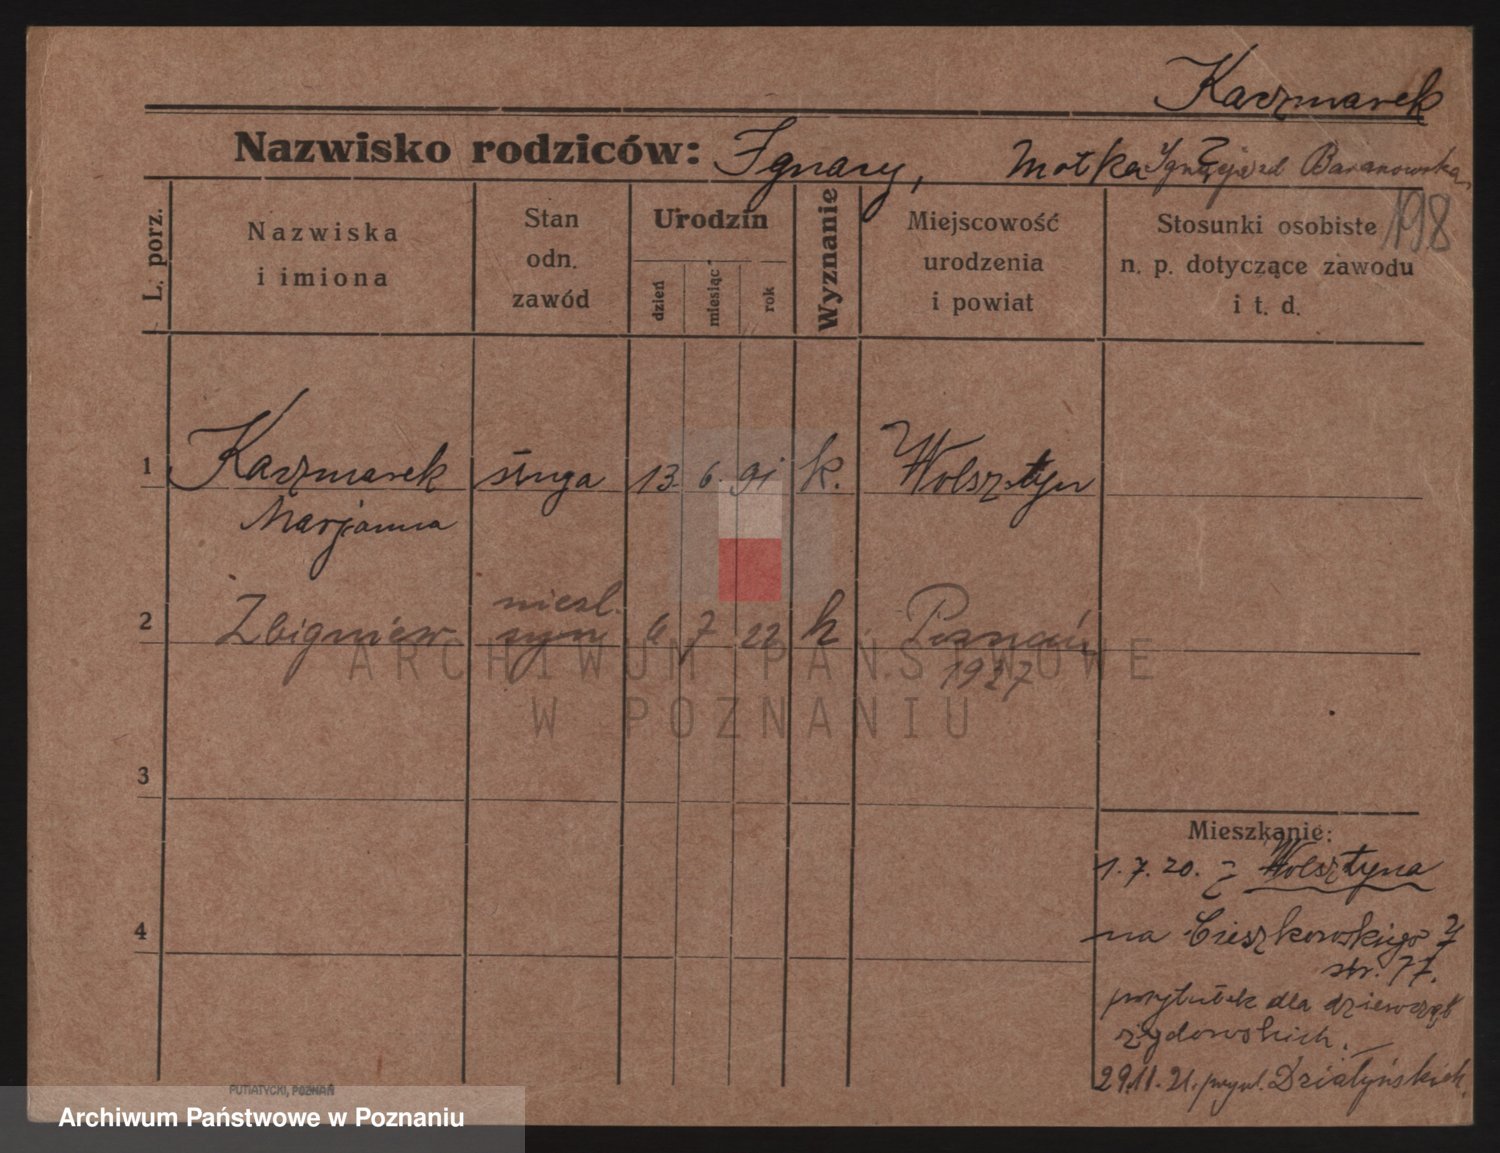 Kaczmarek
Nazwisko rodziców: Ignacy, Matka Baranowska
198
L. porz.
Nazwiska
i imiona
Stan
odn.
zawód
Urodzin
dzień
miesiąc
rok
Wyznanie
Miejscowość
urodzenia
i powiat
Stosunki osobiste
n. p. dotyczące zawodu
i t. d.
1 Kaczmarek sługa 13. 6. 91 k. Wolsztyn
Marjanna
nieśl.
2 Zbigniew syn 6 7 22 k Poznań
1927
ARCHIWUM PAŃSTWOWE
W POZNANIU
3
Mieszkanie:
1.7.20. z Wolsztyna
4
na Cieszkowskiego 7
str. 77.
przytułek dla dziewcząt
żydowskich.
29.11.21. Działyńskich
PUTIATYCKI, POZNAŃ
Archiwum Państwowe w Poznaniu